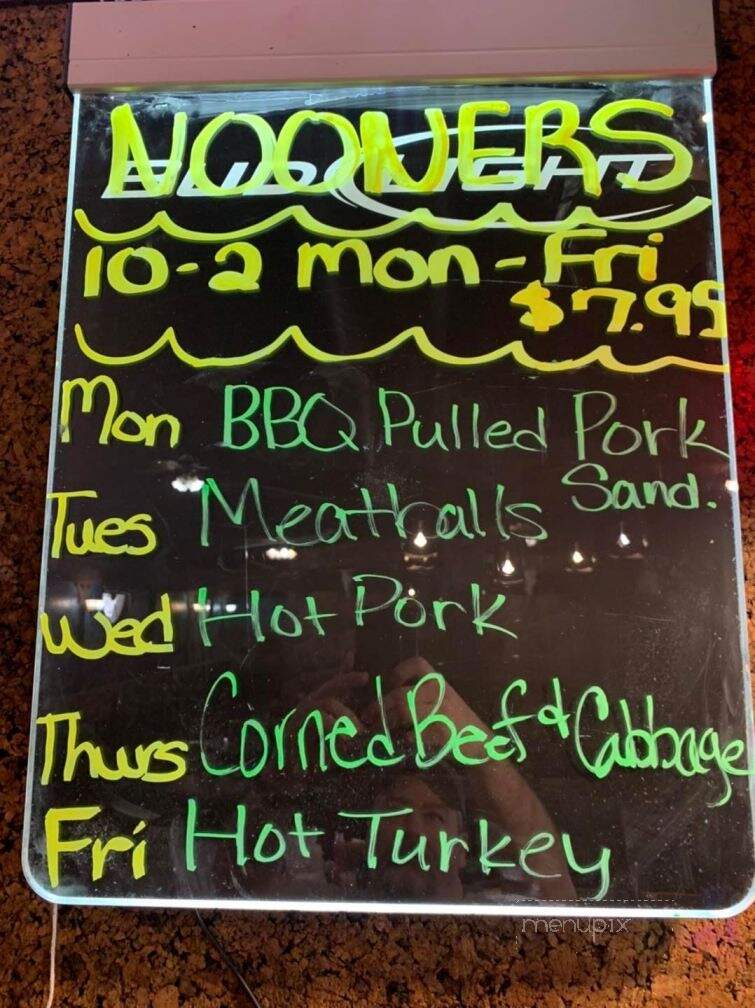 NOONERS
BUD LIGHT
10-2 Mon-Fri
$7.95
Mon BBQ Pulled Pork
Sand.
Tues Meatballs
Wed Hot Pork
Thurs Corned Beef & Cabbage
Fri Hot Turkey
menupix